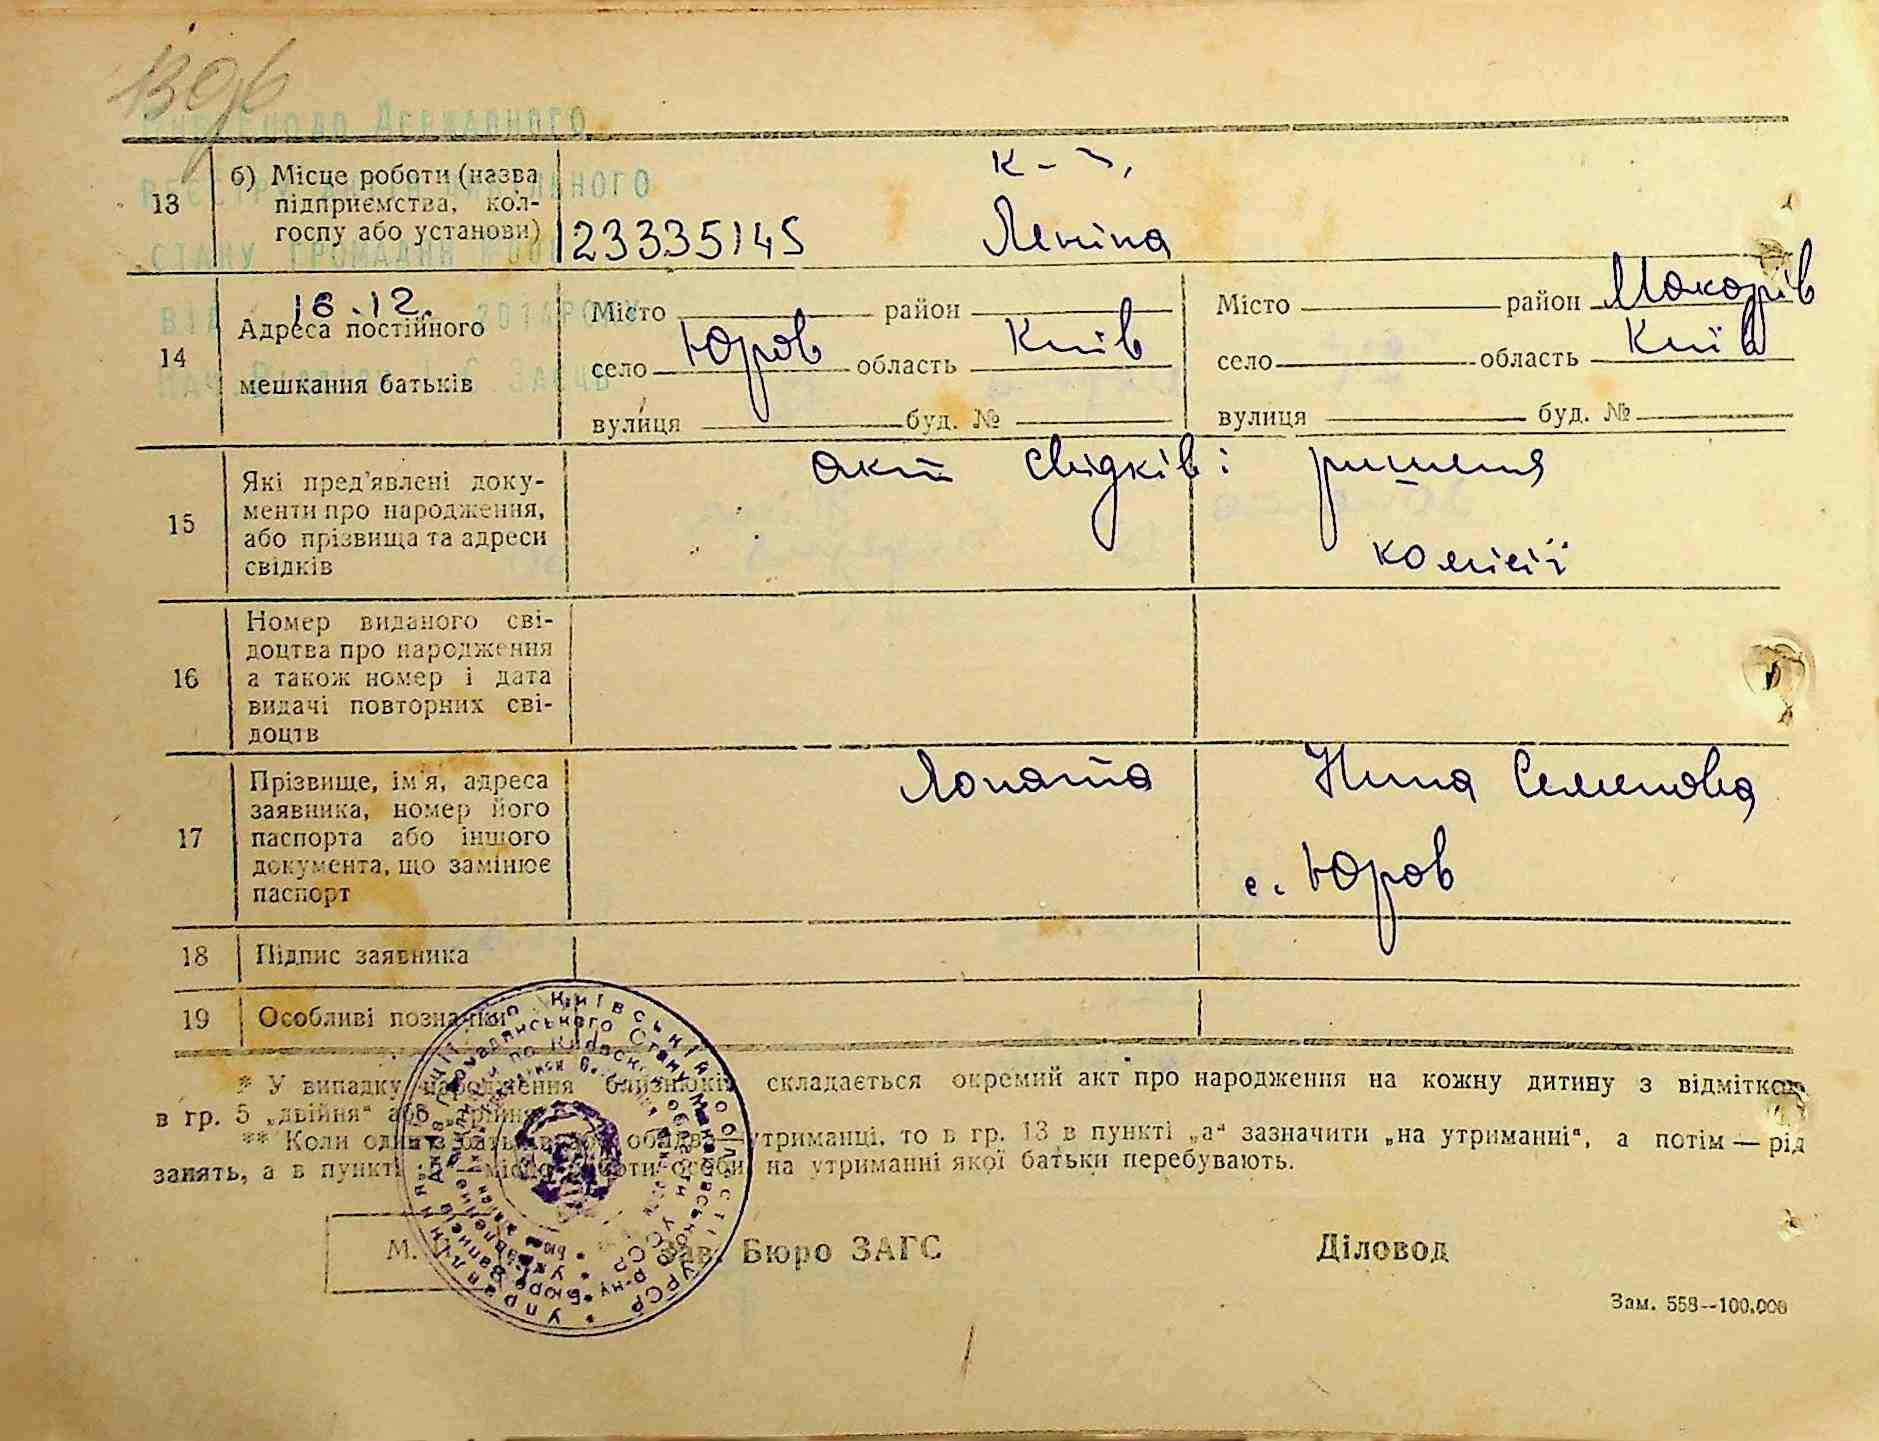 139б
Внесено до Державного
реєстру
ного
стану громадян №00 123335145
від 16.12. 201 року
Нач.відділу І.С.Заєць
13
б) Місце роботи (назва
підприємства, кол-
госпу або установи)
к-з,
Леніна
14
Адреса постійного
мешкання батьків
Місто район
село Юров область Київ
вулиця буд. №
Місто район Макарів
село область Київ
вулиця буд. №
15
Які пред'явлені доку-
менти про народження,
або прізвища та адреси
свідків
акт свідків і ришення
комісії
16
Номер виданого сві-
доцтва про народження
а також номер і дата
видачі повторних сві-
доцтв
17
Прізвище, ім'я, адреса
заявника, номер його
паспорта або іншого
документа, що замінює
паспорт
Лопата Нина Семеновна
с. Юров
18
Підпис заявника
19
Особливі позначки
* У випадку народження близнюків складається окремий акт про народження на кожну дитину з відміткою
в гр. 5 „двійня“ або „трійня“.
** Коли один з батьків або обидва утриманці, то в гр. 13 в пункті „а“ зазначити „на утриманні“, а потім — рід
занять, а в пункті місце роботи особи, на утриманні якої батьки перебувають.
М. П.
Зав. Бюро ЗАГС
Діловод
Зам. 558--100.000